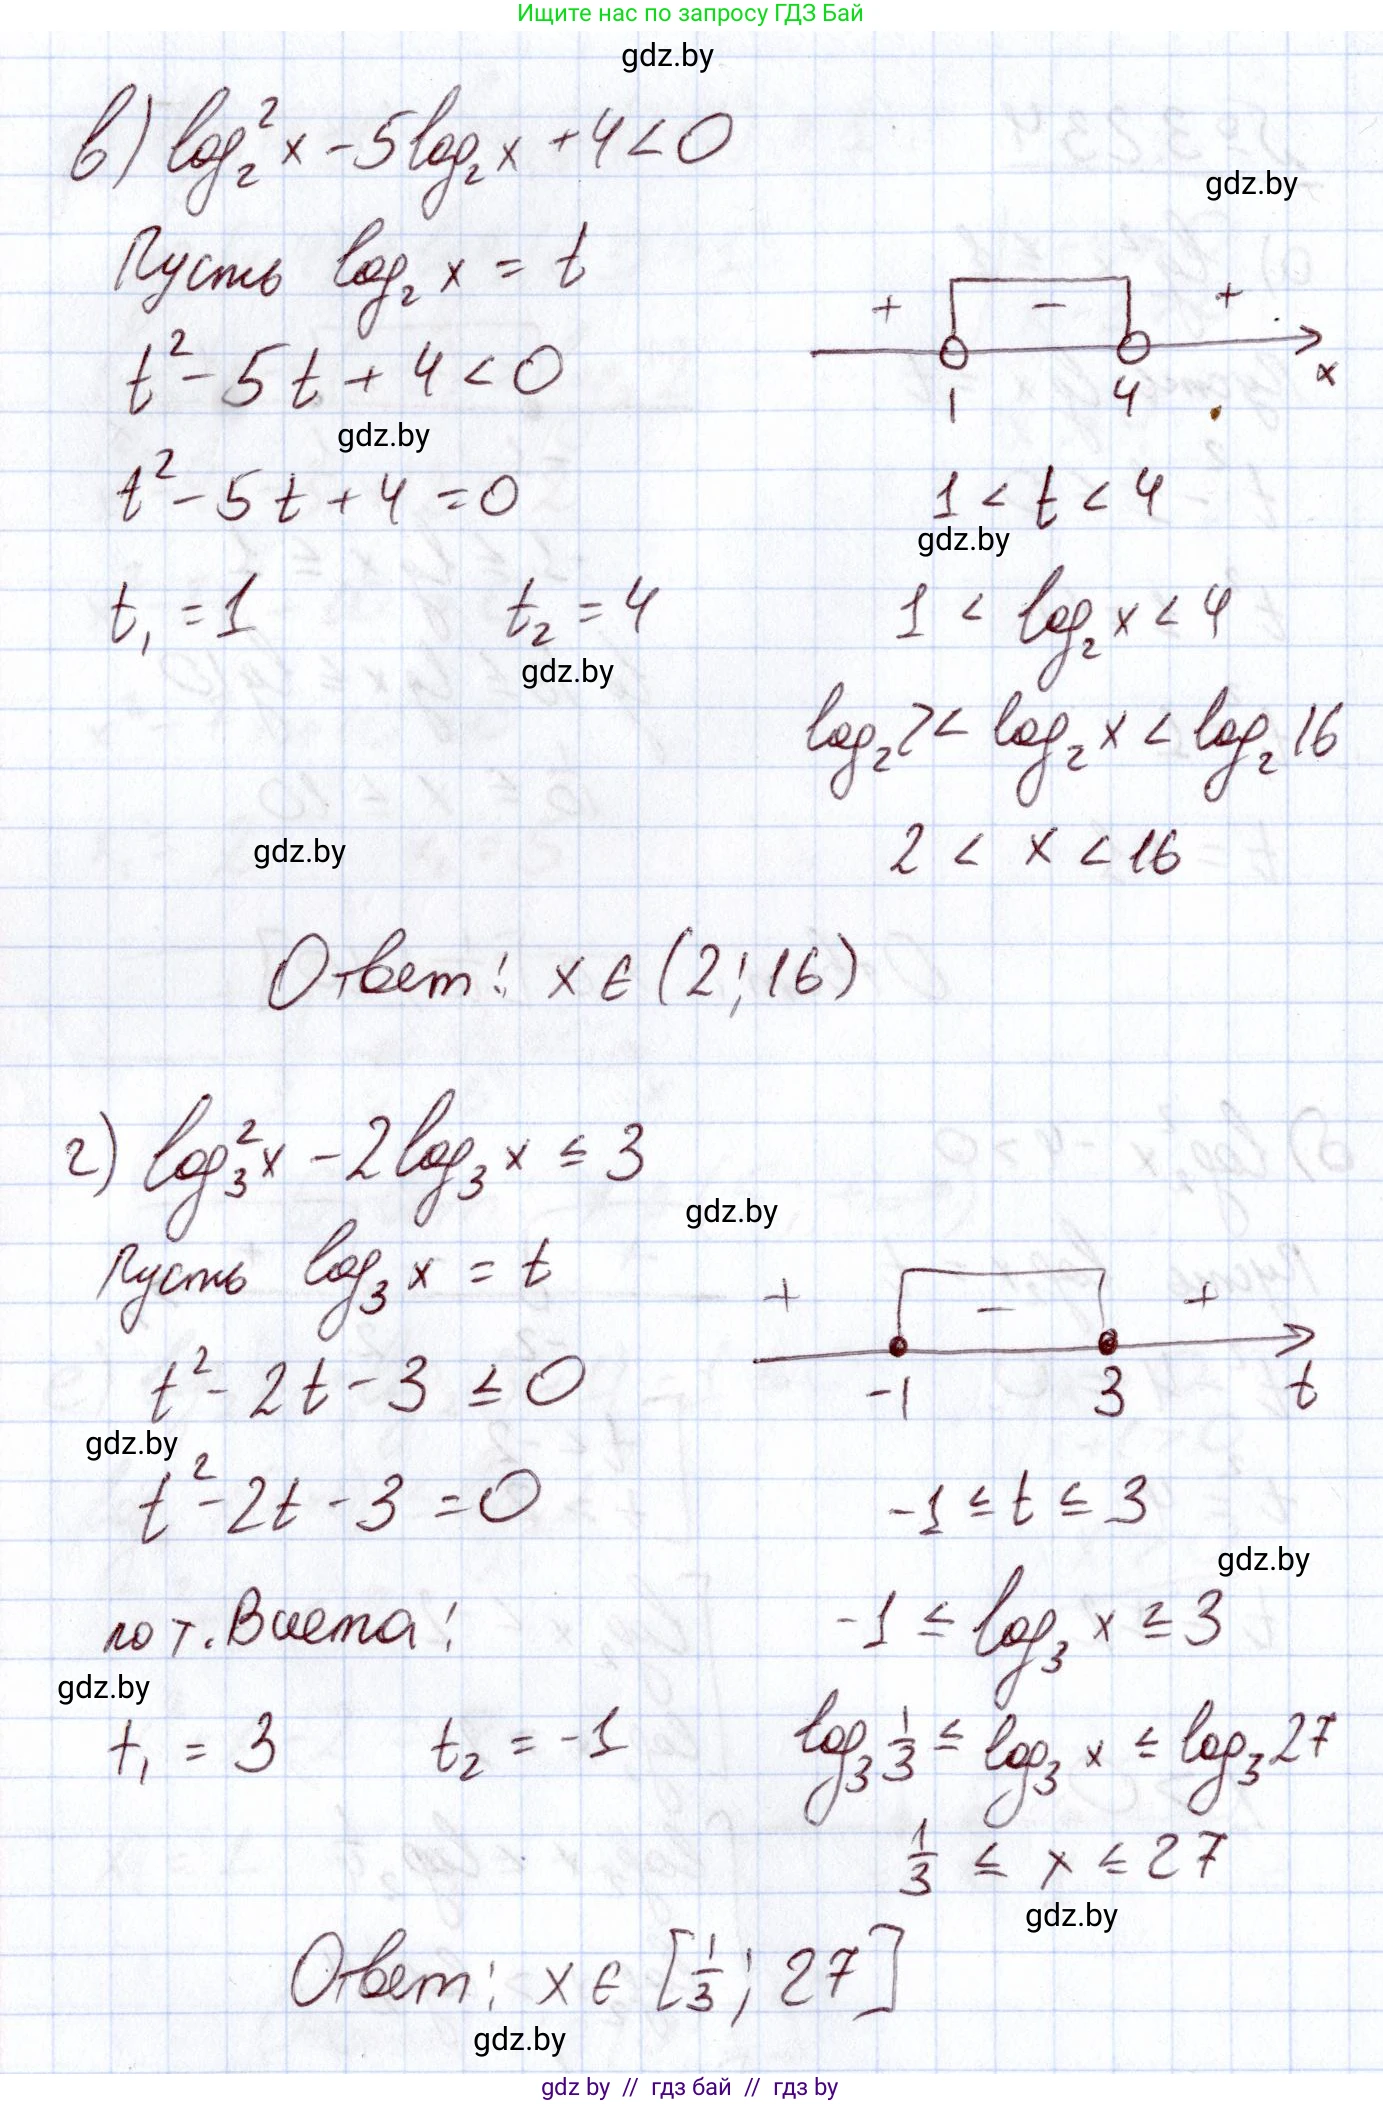 Ищите нас по запросу ГДЗ Бай
gdz.by
в) log₂² x - 5 log₂ x + 4 < 0
gdz.by
Пусть log₂ x = t
+ - +
1 4 x
t² - 5t + 4 < 0
gdz.by
t² - 5t + 4 = 0
1 < t < 4
gdz.by
t₁ = 1 t₂ = 4
1 < log₂ x < 4
gdz.by
log₂ 2 < log₂ x < log₂ 16
2 < x < 16
gdz.by
Ответ: x ∈ (2; 16)
г) log₃² x - 2 log₃ x ≤ 3
gdz.by
Пусть log₃ x = t
+ - +
-1 3 t
t² - 2t - 3 ≤ 0
gdz.by
t² - 2t - 3 = 0
-1 ≤ t ≤ 3
gdz.by
по т. Виета:
-1 ≤ log₃ x ≥ 3
gdz.by
t₁ = 3 t₂ = -1
log₃ 1/3 ≤ log₃ x ≤ log₃ 27
1/3 ≤ x ≤ 27
gdz.by
Ответ: x ∈ [1/3; 27]
gdz.by
gdz by // гдз бай // гдз by